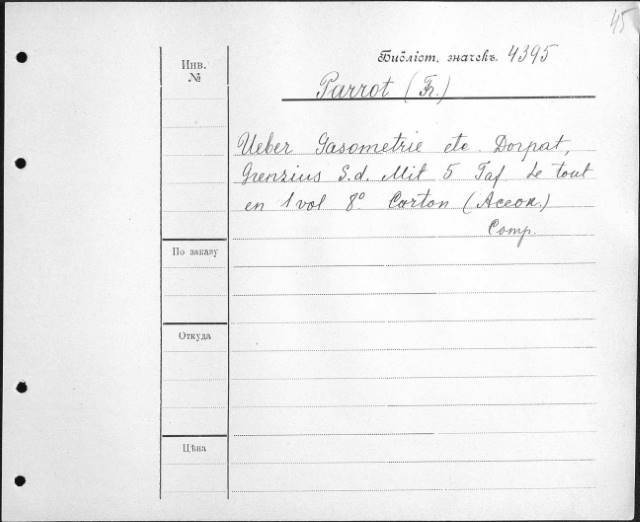 45
Библіот. значекъ. 4395
Инв. №
Parrot (Fr.)
Ueber Gasometrie etc. Dorpat,
Grenzius S.d. Mit 5 Taf. Le tout
en 1 vol 8º. Carton (Асеок.)
Comp.
По заказу
Откуда
Цѣна